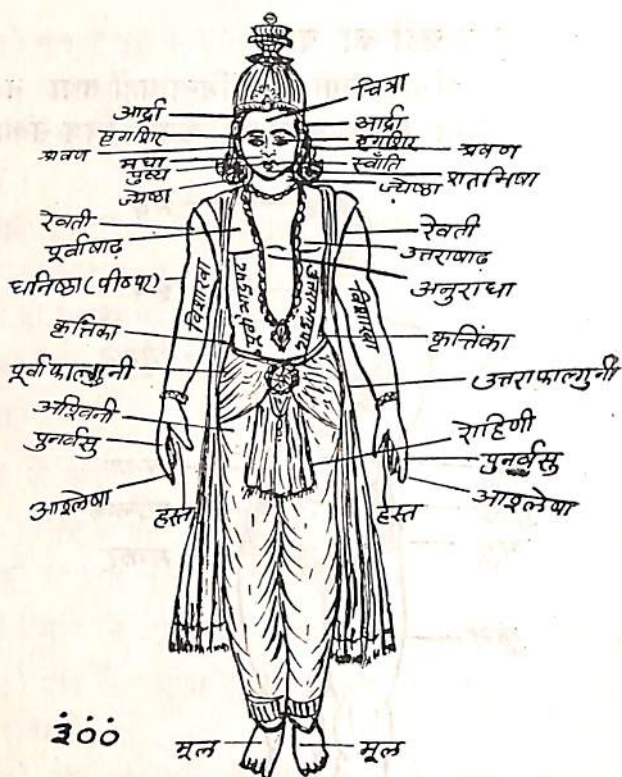 चित्रा
आर्द्रा
आर्द्रा
मृगशिर
मृगशिर
श्रवण
श्रवण
मघा
स्वाँति
पुष्य
शतभिषा
ज्येष्ठा
ज्येष्ठा
रेवती
रेवती
पूर्वाषाढ़
उत्तराषाढ़
धनिष्ठा (पीठ पर)
अनुराधा
विशाखा
विशाखा
कृत्तिका
कृत्तिंका
पूर्वाफाल्गुनी
उत्तराफाल्गुनी
अश्विनी
रोहिणी
पुनर्वसु
पुनर्वसु
आश्लेषा
आश्लेषा
हस्त
हस्त
मूल
मूल